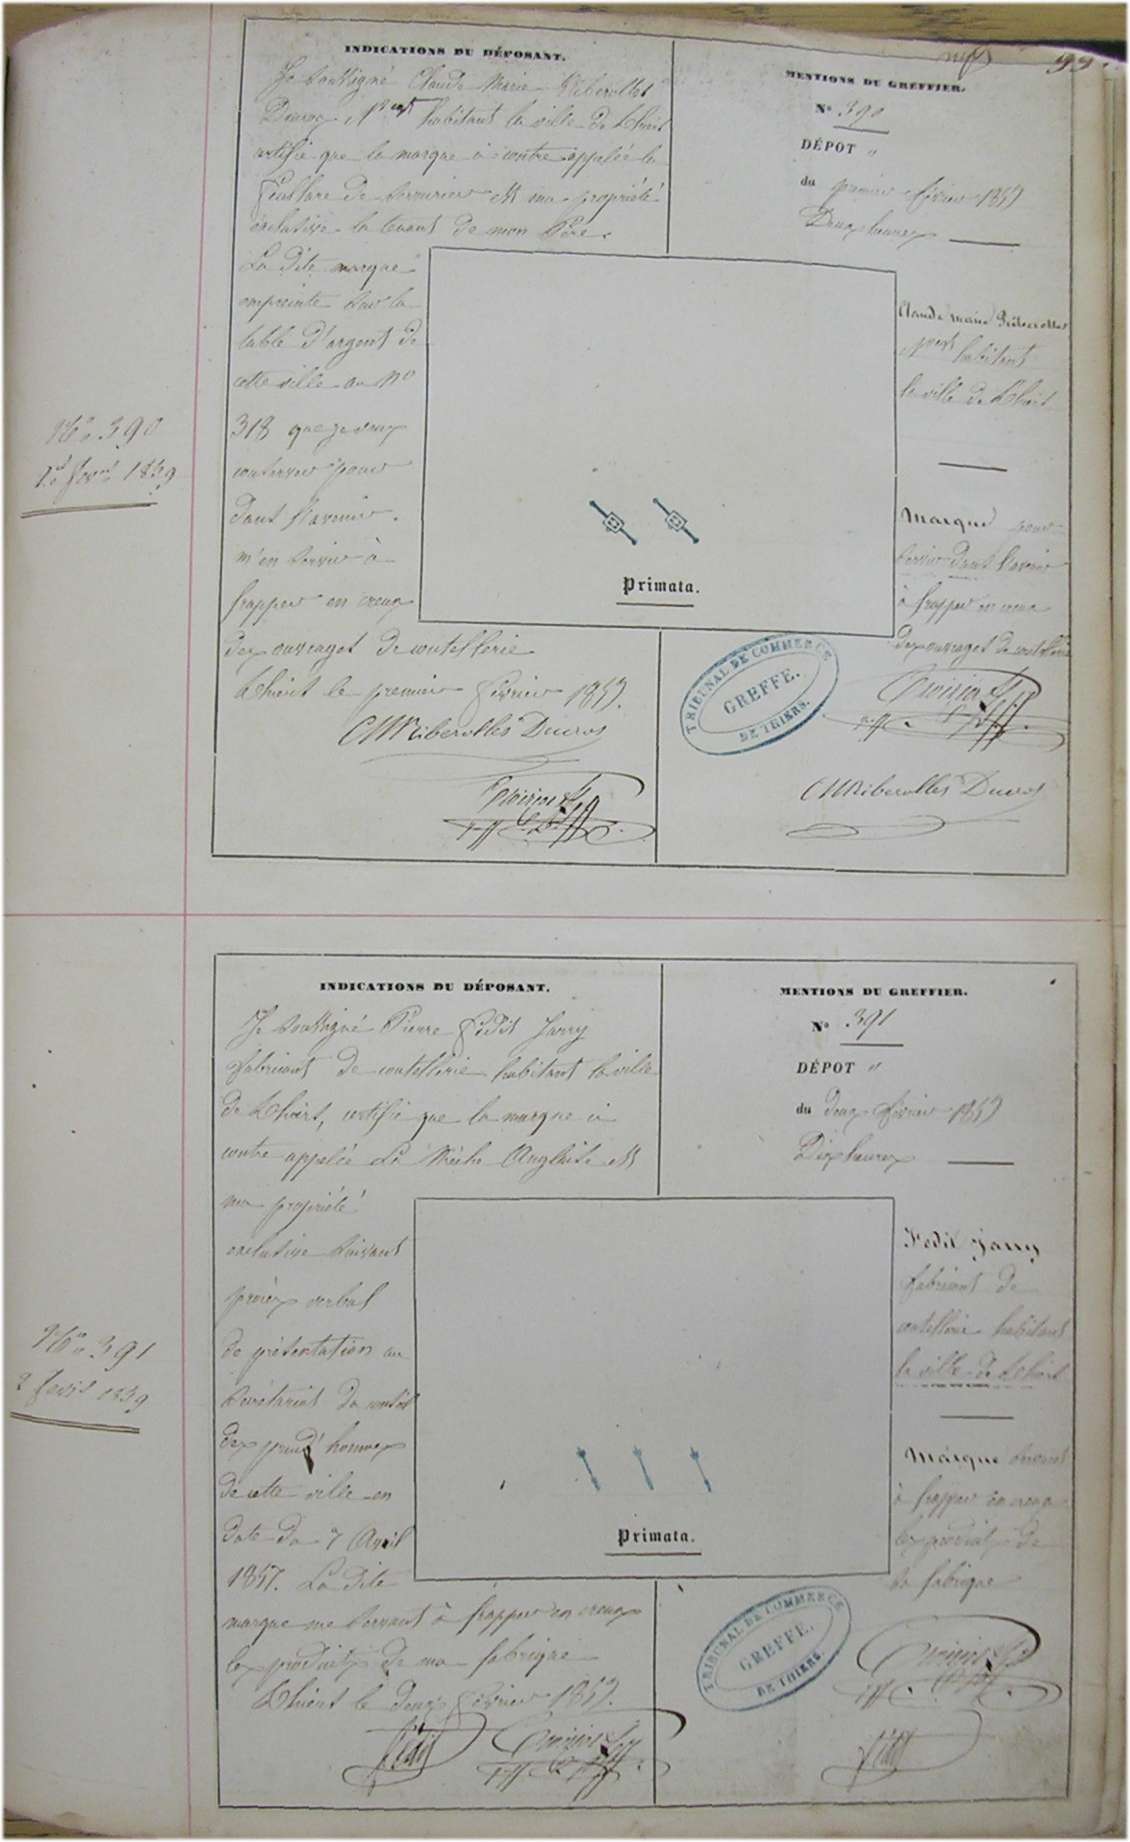 99.
INDICATIONS DU DÉPOSANT.
Je soussigné Claude Marie Riberolles
Ducros, habitant la ville de Thiers
certifie que la marque ci contre appelée la
de serrurier est ma propriété
exclusive la tenant de mon Père.
La dite marque
empreinte sur la
table d'argent de
cette ville au No
318 que je veux
conserver pour
dans l'avenir.
m'en servir à
frapper en creux
des ouvrages de coutellerie
Thiers le premier février 1859.
CMRiberolles Ducros
MENTIONS DU GREFFIER.
No 390
DÉPOT "
du premier février 1859
Deux heures
Claude Marie Riberolles
habitant
la ville de Thiers
Marque pour
servir dans l'avenir
à frapper en creux
des ouvrages de coutellerie
CMRiberolles Ducros
Primata.
TRIBUNAL DE COMMERCE
GREFFE.
DE THIERS.
No 390
1er fevr 1859
INDICATIONS DU DÉPOSANT.
Je soussigné Pierre Fédit Jarry
fabricant de coutellerie habitant la ville
de Thiers, certifie que la marque ci
contre appelée La Mèche Anglaise est
ma propriété
exclusive suivant
procès verbal
de présentation au
Secrétariat du conseil
des prud'hommes
de cette ville en
date du 7 Avril
1857. La dite
marque me servant à frapper en creux
les produits de ma fabrique
Thiers le deux février 1859.
Fédit
MENTIONS DU GREFFIER.
No 391
DÉPOT "
du deux février 1859
Dix heures
Fédit Jarry
fabricant de
coutellerie habitant
la ville de Thiers
Marque servant
à frapper en creux
les produits de
sa fabrique
Fédit
Primata.
TRIBUNAL DE COMMERCE
GREFFE.
DE THIERS.
No 391
2 fevr 1859